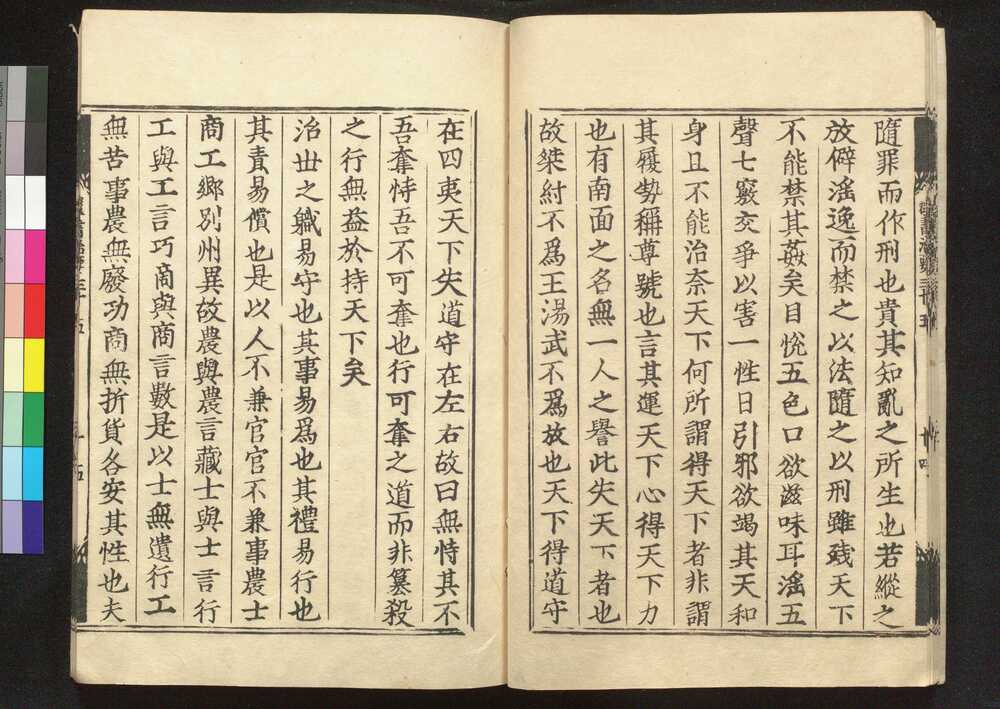 隨罪而作刑也貴其知亂之所生也若縱之
放僻滛逸而禁之以法隨之以刑雖殘天下
不能禁其姦矣目恱五色口欲滋味耳滛五
聲七竅交爭以害一性日引邪欲竭其天和
身且不能治奈天下何所謂得天下者非謂
其履勢稱尊號也言其運天下心得天下力
也有南面之名無一人之譽此失天下者也
故桀紂不爲王湯武不爲放也天下得道守
在四夷天下失道守在左右故曰無恃其不
吾奪恃吾不可奪也行可奪之道而非簒殺
之行無益於持天下矣
治世之軄易守也其事易爲也其禮易行也
其責易償也是以人不兼官官不兼事農士
商工郷別州異故農與農言藏士與士言行
工與工言巧商與商言數是以士無遺行工
無苦事農無廢功商無折貨各安其性也夫